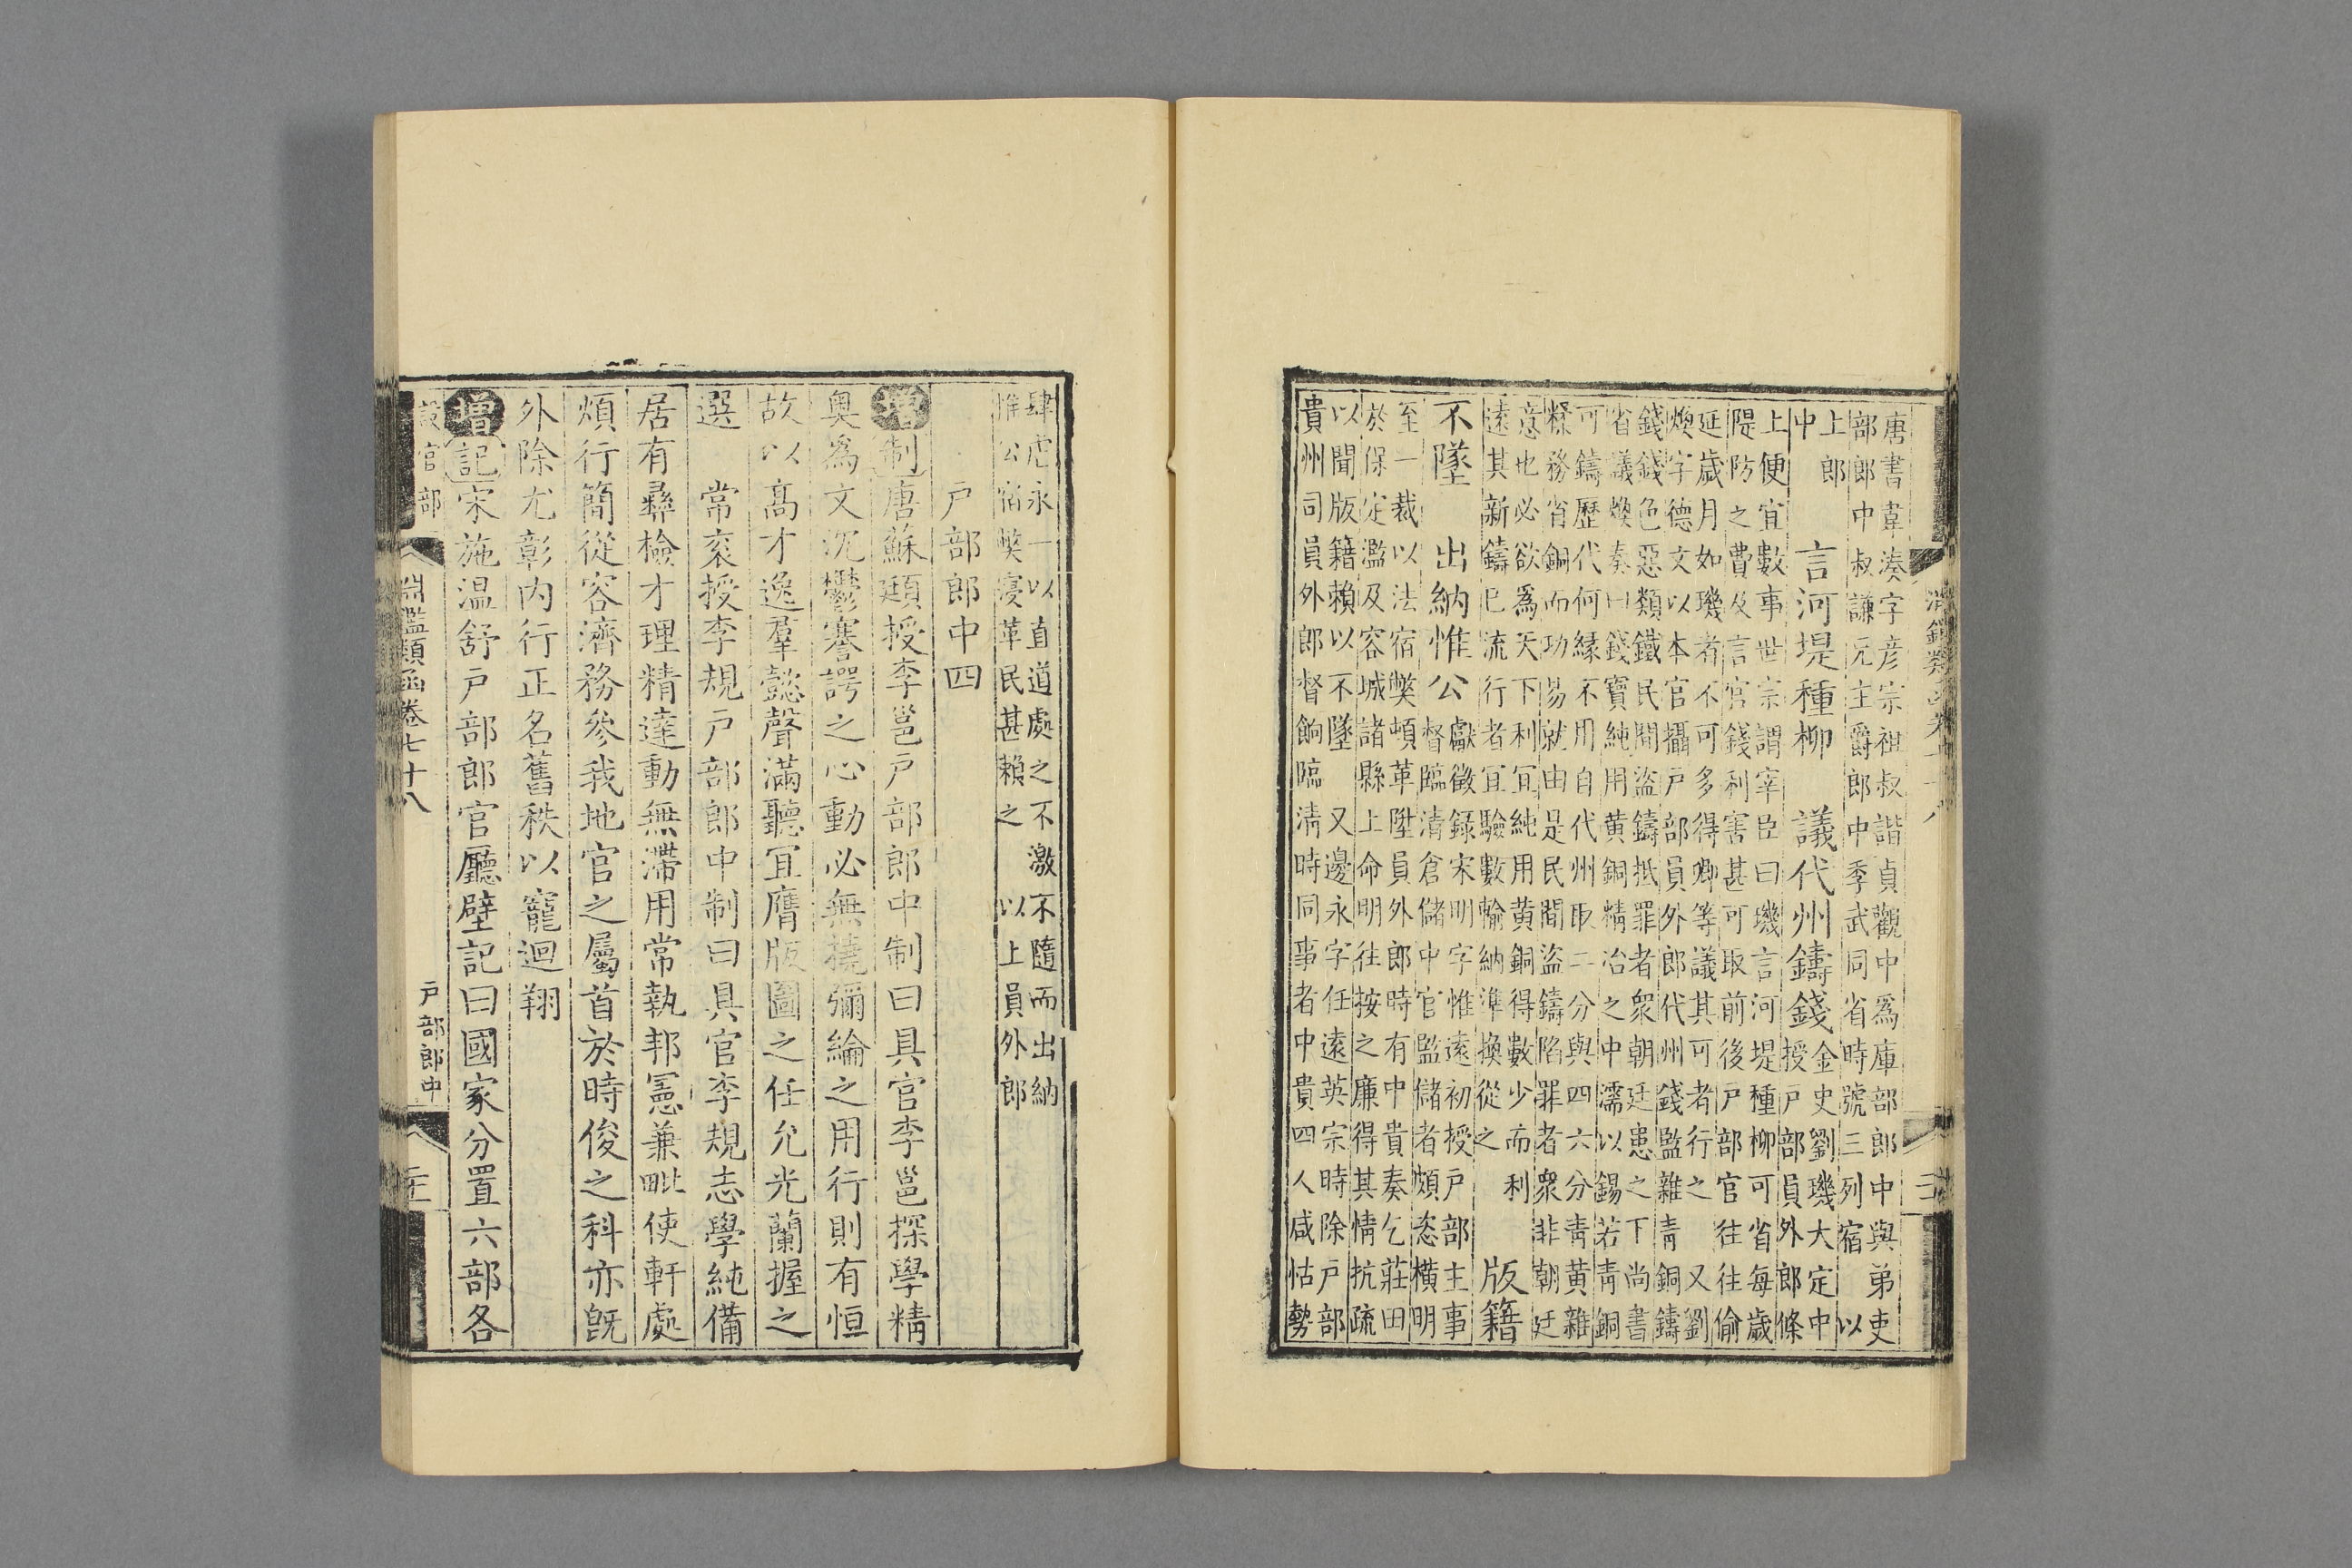 唐書韋湊字彦宗祖叔諧貞觀中爲庫部郎中與弟吏
部郎中叔謙兄主爵郎中季武同省時號三列宿 以
上郎
中 言河堤種柳 議代州鑄錢 金史劉璣大定中
授戸部員外郎條
上便宜數事世宗謂宰臣曰璣言河堤種柳可省每歲
隄防之費及言官錢利害甚可取前後戸部官往往偷
延歲月如璣者不可多得卿等議其可者行之 又劉
煥字德文以本官攝戸部員外郎代州錢監雜青銅鑄
錢錢色惡類鐵民間盜鑄抵罪者衆朝廷患之下尚書
省議煥奏曰錢寶純用黄銅精冶之中濡以錫若青銅
可鑄歷代何緣不用自代州取二分與四六分青黄雜
糅務省銅而功易就由是民間盜鑄陷罪者衆非朝廷
意也必欲爲天下利宜純用黄銅得數少而利
遠其新鑄已流行者宜驗數輸納準換從之 版籍
不墜 出納惟公 獻徵錄宋明字惟遠初授戸部主事
督臨清倉儲中官監儲者頗恣橫明
至一裁以法宿獘頓革陞員外郎時有中貴奏乞莊田
於保定濫及容城諸縣上命明往按之廉得其情抗疏
以聞版籍賴以不墜 又邊永字任遠英宗時除戸部
貴州司員外郎督餉臨清時同事者中貴四人咸怙勢
肆虐永一以直道處之不激不隨而出納
惟公宿獘寖革民甚賴之 以上員外郎
戸部郎中四
增制唐蘇頲授李邕戸部郎中制曰具官李邕探學精
奥爲文沉鬱謇諤之心動必無撓彌綸之用行則有恒
故以高才逸羣懿聲滿聽宜膺版圖之任允光蘭握之
選 常衮授李規戸部郎中制曰具官李規志學純備
居有彝檢才理精達動無滯用常執邦憲兼毗使軒處
煩行簡從容濟務參我地官之屬首於時俊之科亦旣
外除尤彰内行正名舊秩以寵迴翔
增記宋施温舒戸部郎官廳壁記曰國家分置六部各
設官部 淵鑑類函卷七十八 戸部郎中